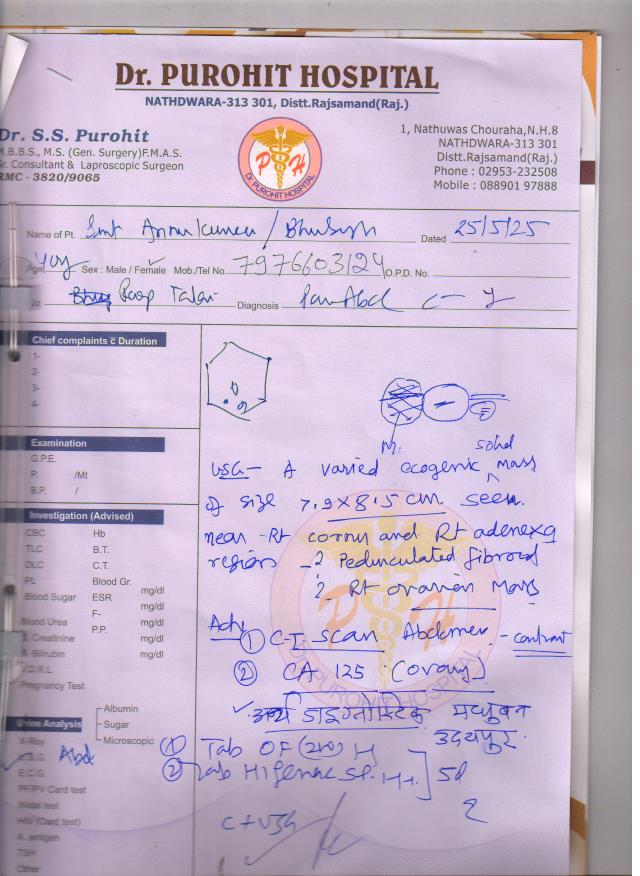 Dr. PUROHIT HOSPITAL
NATHDWARA-313 301, Distt.Rajsamand(Raj.)
Dr. S.S. Purohit
M.B.B.S., M.S. (Gen. Surgery)F.M.A.S.
Sr. Consultant & Laproscopic Surgeon
RMC - 3820/9065
Dr. PUROHIT HOSPITAL
P H
1, Nathuwas Chouraha,N.H.8
NATHDWARA-313 301
Distt.Rajsamand(Raj.)
Phone : 02953-232508
Mobile : 088901 97888
Name of Pt. Smt / Dated 25/5/25
Age 40y Sex : Male / Female Mob./Tel No 7976603124 O.P.D. No.
Diagnosis
Chief complaints c̄ Duration
1-
2-
3-
4-
Examination
G.P.E.
P. /Mt
B.P. /
Investigation (Advised)
CBC Hb
TLC B.T.
DLC C.T.
PL Blood Gr.
Blood Sugar ESR mg/dl
F- mg/dl
Blood Urea P.P. mg/dl
S. Creatinine mg/dl
S. Bilirubin
V.D.R.L.
Pregnancy Test
Urine Analysis
Albumin
Sugar
Microscopic
X-Ray
U.S.G. Abd
E.C.G.
PF/PV Card test
Widal test
HIV (Card test)
A. antigen
TSH
Other
USG - A varied ecogenic solid mass
of size 7.9 x 8.5 cm seen.
near - Rt cornu and Rt adenexa
region - ? Pedunculated fibroid
? - Rt ovarian Mass
Adv
① C.T. scan Abdomen - contrast
② CA 125 (ovary)
✓ अर्थ डाइग्नोस्टिक मधुबन
उदयपुर
① Tab OF (200) H
② Tab Hifenac SP H ] 5d